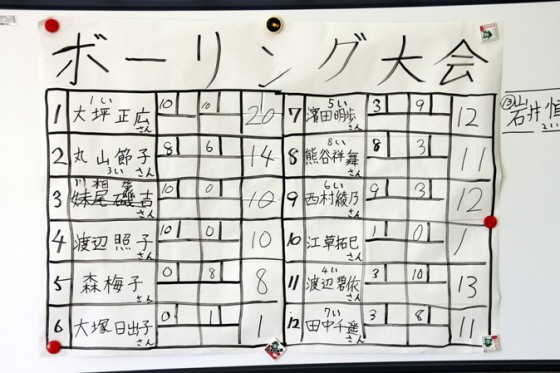 ボーリング大会
1 1い 大坪正広さん 10 10 20
2 丸山節子さん 8 6 14
3 3い 10 0 10
4 渡辺照子さん 10 0 10
5 森梅子さん 0 8 8
6 大塚日出子さん 0 1 1
7 5い 濱田明歩さん 3 9 12
8 8い 熊谷祥舞さん 8 3 11
9 6い 西村綾乃さん 9 3 12
10 江草拓巳さん 1 0 1
11 4い 渡辺碧依さん 3 10 13
12 7い 田中千遥さん 3 8 11
③ 岩井恒